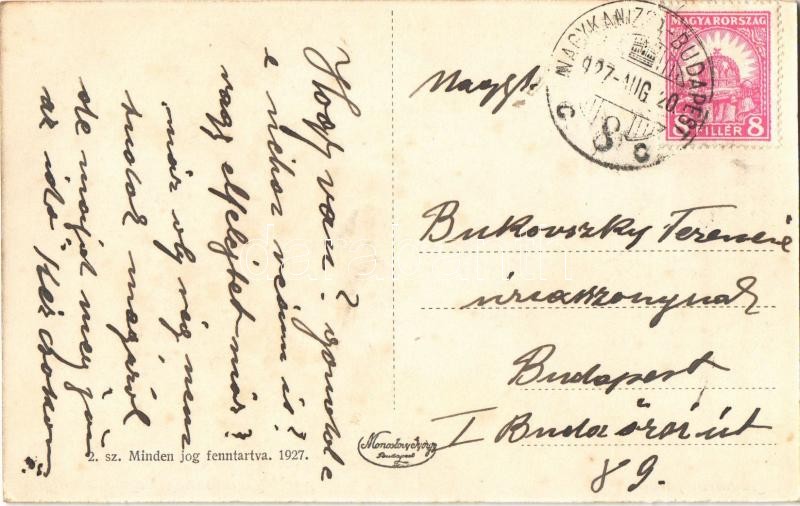 Hogy van? gondol e
e néha reám is?
vagy elfelejtet már?
már oly rég nem
tudok magáról
de majd meg jön
az idő Kézcsókom
2. sz. Minden jog fenntartva. 1927.
Monostory György
Budapest
NAGYKANIZSA-BUDAPEST
927 AUG 20
C 8 C
MAGYARORSZÁG
8 FILLÉR 8
Nagyk
Bukovszky Ferencné
úriasszonynak
Budapest
I Budaőrsi út
89.